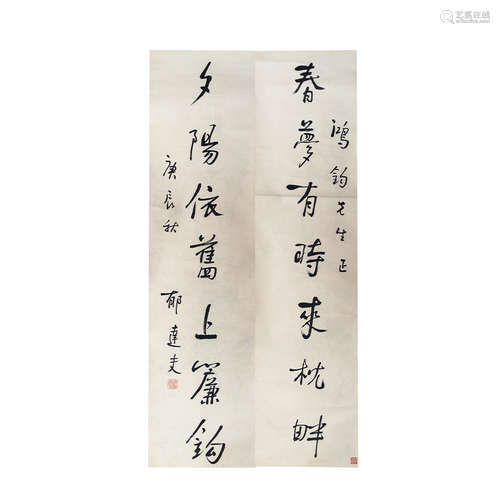 春夢有時來枕畔
鴻鈞先生正
夕陽依舊上簾鈎
庚辰秋
郁達夫